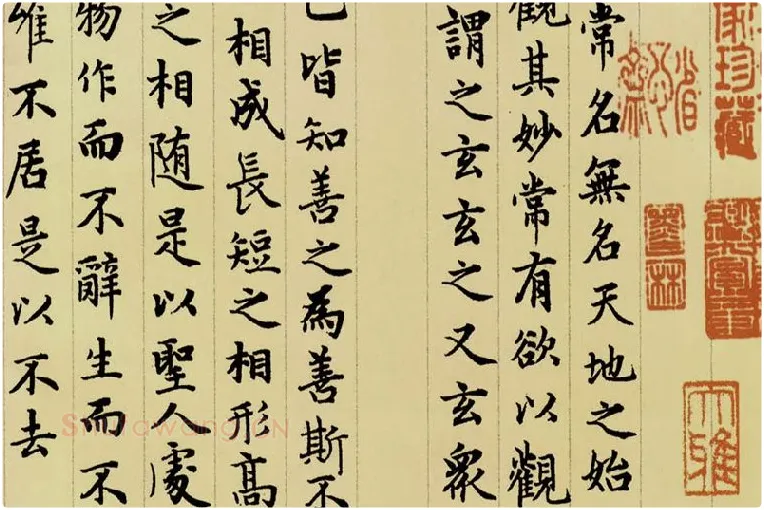 家珍藏
常名無名天地之始
觀其妙常有欲以觀
謂之玄玄之又玄眾
已皆知善之為善斯不
相成長短之相形高
之相随是以聖人處
物作而不辭生而不
不居是以不去
墨林
大雅